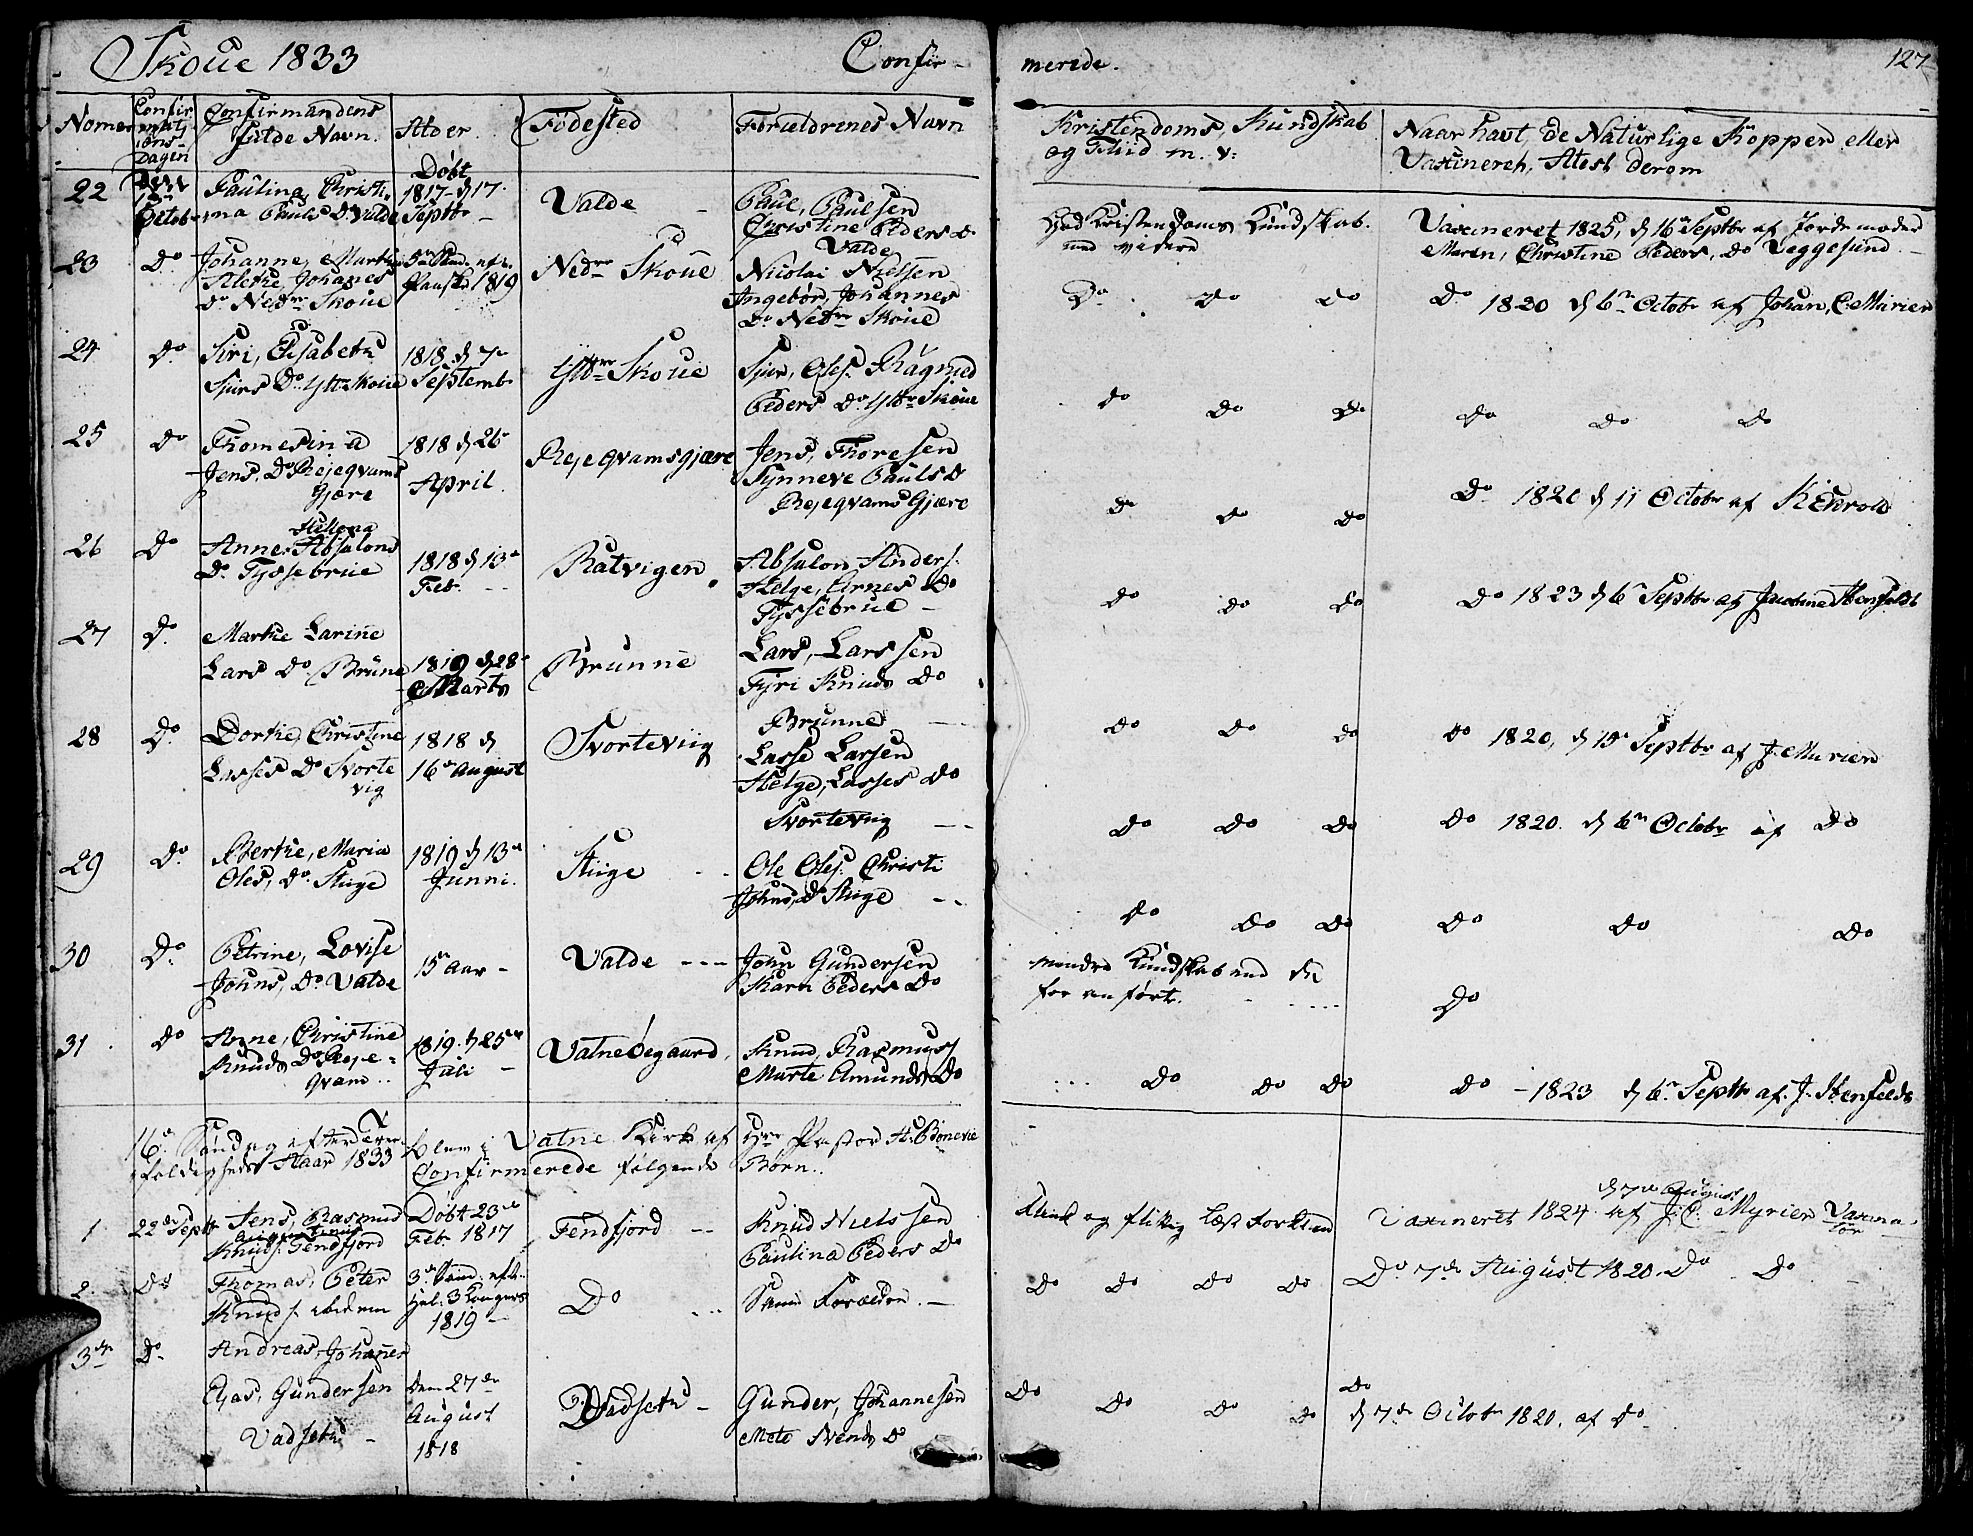 Skoue 1833 Confir-
merede. 127
Nomer Confirmations Dagen Confirmandens fulde Navn. Alder. Fødested Foreldrenes Navn
Kristendoms, Kundskab og Fliid m. v: Naar havt, de Naturlige Kopper eller Vaxineret, Atest derom
22 Octob Paulina, Christi-
na Pauls Dr Valde
Døbt
1817 d 17
Septbr
Valde
Paul, Paulsen
Christine Peders D.
Valde
Kristendoms Kundskab.
Vaxineret 1825, d 16 Septbr af Jordemoder
Maren, Christine Peders, Do Læggesund
23 Do Johanne, Marthe
Aletke, Johanes
Do Nedre Skoue
1819
Nedre Skoue
Nicolai Nielsen
Ingebor, Johannes
Do Nedre Skoue
Do Do Do
Do 1820 d 6te Octobr af Johan, C. Marien
24 Do Siri, Elisabeth
Sjurs Do Yttr Skoue
1818 d 7de
Septembr
Yttre Skoue
Sjur, Oles. Ragnild
Peders Do Yttre Skoue
Do Do Do
Do Do Do
25 Do Thomesina
Jens, Do Rejeqvams
Gjære
1818 d 26
April.
Rejeqvamsgjære
Jens, Thoresen
Synneve Pauls D
Rejeqvams Gjære
Do Do Do
Do 1820 d 11 Octobr af K Ekrold
26 Do Anne Hellena Absalons
Do Tyssebrue
1818 d 13
Feb.
Ratvigen
Absalon Anders.
Helge, Arnes Do
Tyssebrue
Do Do Do
Do 1823 d 6te Septbr af Jacobine Stenfeldt
27 Do. Marthe Larine
Lars Do Brune
1819 d 28
Marts
Brunne
Lars, Larssen
Fyri Knuds Do
Brunne
Do Do Do
Do 1820, d 15 Septbr af J. Marien
28 Do. Dorthe, Christine
Lasses Do Svorte
vig
1818 d
16 August
Svorteviig
Lasse Larsen
Helge, Lasses Do
Svorteviig
Do Do Do
Do 1820. d 6te Octobr af Do
29 Do Berthe, Maria
Oles, Do. Stiige
1819 d 13
Junni.
Stiige
Ole Oles. Christi
Johns, Do Stiige
Do Do Do
Do Do Do
30 Do. Petrine, Lovise
Johns, Do. Valde
15 Aar
Valde
John Gundersen
Karn Peders Do
mindre Kundskab end de
for anførte.
Do
31 Do Anne, Christine
Knuds Do Reje-
qvam
1819. d 25
Juli
Vatneøegaard.
Knud, Rasmuss
Marte Amunds Do
Do Do Do
Do 1823 d 6te Septbr af. J. Stenfelds
16de Søndag efter
foldigheds Aaar 1833 blem i Vatne Kirke af Hr Pastor H. Bonevie
Confirmerede følgende Børn.
1 22de Septbr Jens, Rasmus
Augustinus
Knuds. Tendfjord
Døbt 23de
Feb. 1817
Tendfjord
Knud Nielssen
Paulina Peders Do
flink og flittig læst Forklar
Vaxineret 1824 d 7de August af J. C. Myrien Vaxina
tør
2 Do Thomas, Peter
Knuds. ibidem
1819
Do
Samme Forældre.
Do Do Do Do
Do 7de August 1820. Do Do
3die Do Andreas, Johanes
Elias, Gundersen
Vadseth
den 27de
August
1818
Vadseth
Gunder, Johannesen
Mete Svends Do
Do Do Do Do
Do
d 7de Octobr 1820. af Do